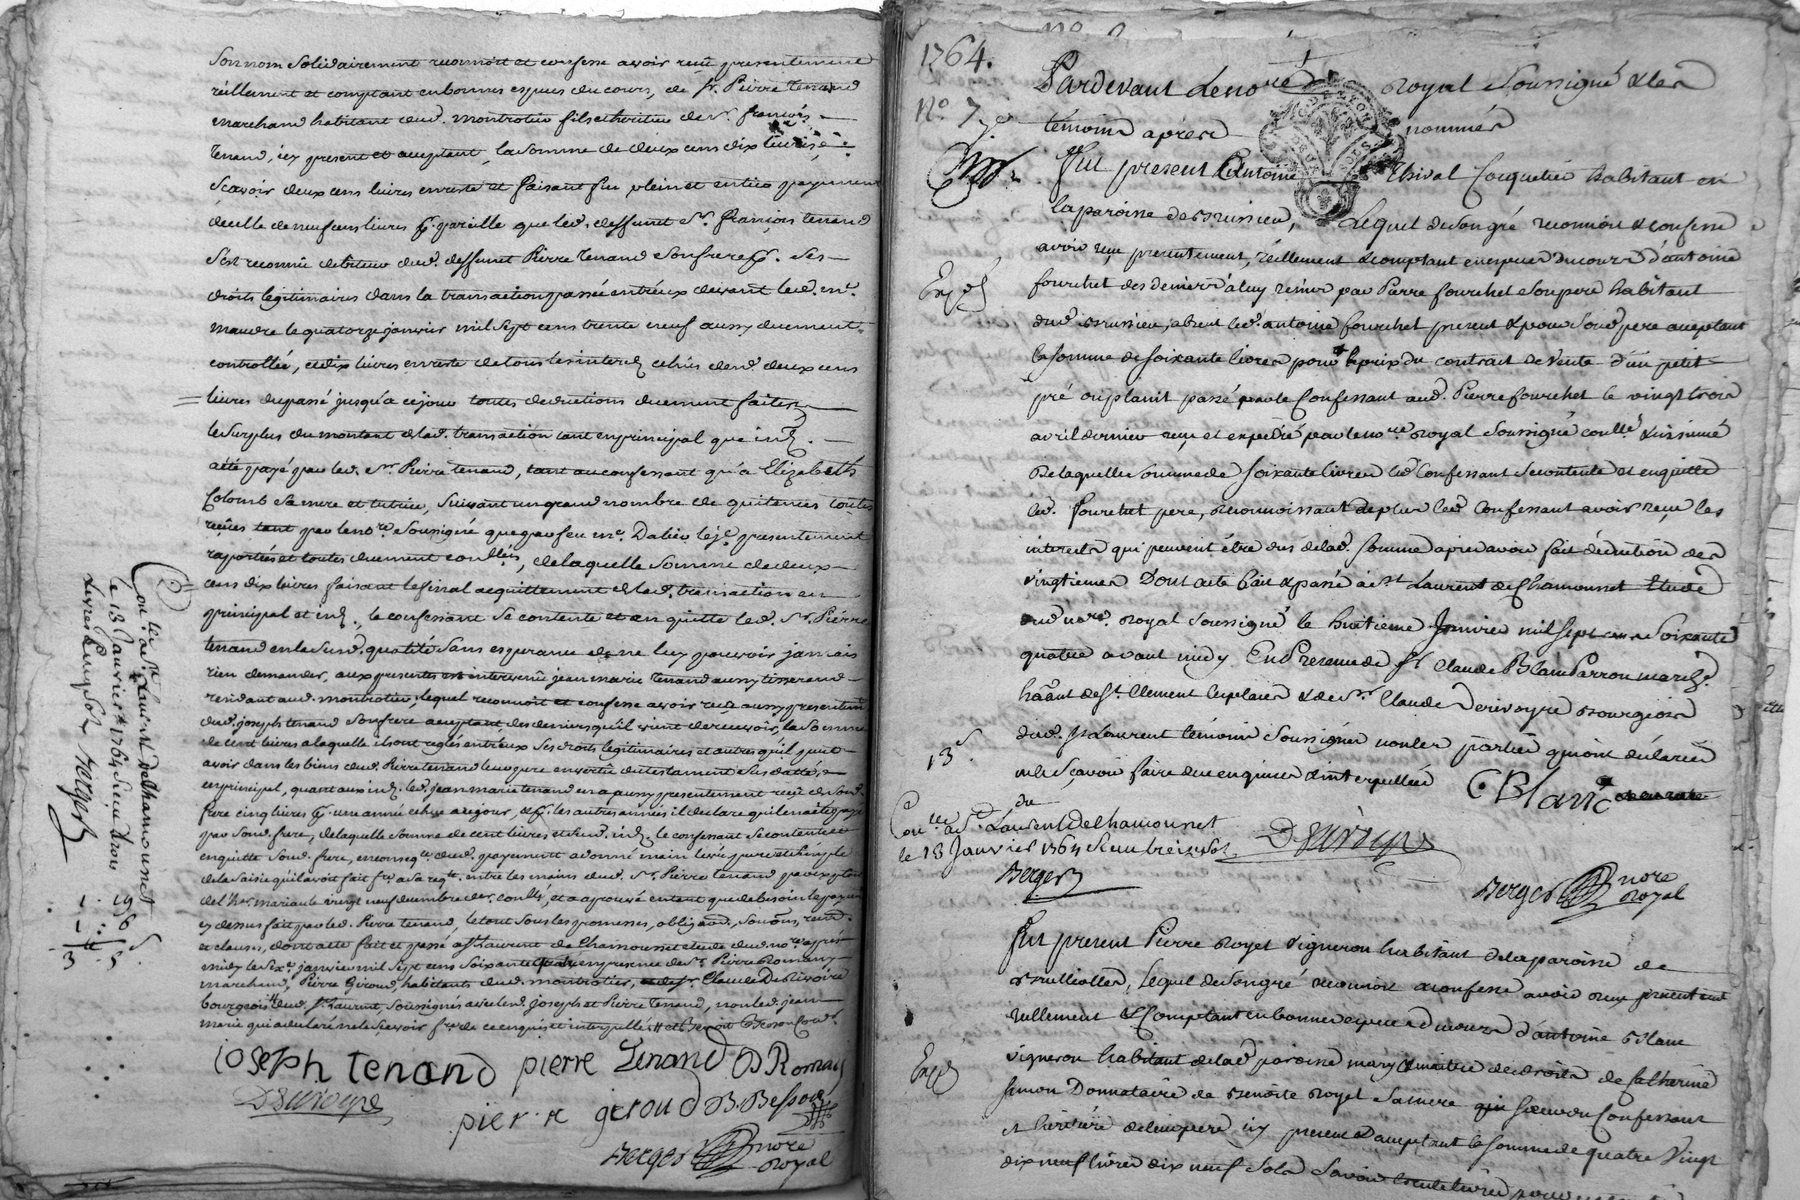 son nom solidairement reconnoit et confesse avoir reçû presentement
réellement et comptant en bonnes especes du cours, de Sr. Pierre tenand
marchand habitant dud. montrotier fils et heritier de Sr. françois
tenand, icy present et acceptant, la somme de deux cens dix livres,
scavoir deux cens livres en reste et faisant fin plein et entier payement
de celle de neuf cens livres pareille que led. deffunt Sr. françois tenand
s'est reconnu debiteur aud. deffunt Pierre tenand son frere ses
droits legitimaires dans la transaction passée entr'eux devant led. me.
le quatorze janvier mil sept cens trente neuf aussy duement
controllée, et dix livres en reste de tous les interets de deux cens
livres du passé jusqu'à ce jour toutes deductions duement faites
le surplus du montant de lad. transaction tant en principal que int.
a été payé par led. Sr. Pierre tenand, tant au confessant qu'a Elizabeth
Colomb sa mere et tutrice, suivant un grand nombre de quitances toutes
reçües tant par le nore. soussigné que par feu me. presentement
raportées et toutes duement conllées, de laquelle somme de deux
cens dix livres faisant le final acquittement de lad. transaction en
principal et int., le confessant se contente et en quitte led. Sr. Pierre
tenand en lasusd. qualité sans esperance de ne luy pouvoir jamais
rien demander, aux presentes est intervenu jean marie tenand aussy tisserand
residant aud. montrotier, lequel reconnoit et confesse avoir reçu aussy presentement
dud. joseph tenand son frere acceptant, des deniers qu'il vient de recevoir, la somme
de cent livres a laquelle ils ont reglés entr'eux ses droits legitimaires et autres qu'il peut
avoir dans les biens dud. Pierre tenand leur pere en vertu du testament sus datté
en principal, quant aux int. led. jean marie tenand en a aussy presentement reçu de sond.
frere cinq livres une année echue a ce jour, les autres années il declare qu'il en a été payé
par sond. frere, de laquelle somme de cent livres et susd. int. le confessant se contente et
en quitte sond. frere, en conseqce. dud. payement a donné main levée pure et simple
de la saisie qu'il avoit fait fre a sa reqte. entre les mains dud. Sr. Pierre tenand par exploit
de l'her. mariau le vingt neuf decembre der. conllé, et a aprouvé en tant que de besoin le payement
cy dessus fait par led. Pierre tenand, le tout sous les promesses, obligaons, soumons, renons
et clauses, dont acte fait et passé a St. Laurent de Chamousset etude dud. nore. après
midy le six janvier mil sept cens soixante quatre en presence de Sr. Pierre Romany
marchand, Pierre Giroud, habitants dud. montrotier, Sr. Claude Derivoire
bourgeois dud. St. Laurent, soussignés avec lesd. joseph et Pierre tenand, non led. jean
marie qui a declaré ne le scavoir fre. de ce enquis et interpellés
ioseph tenand pierre Tenand Romany
Derivoyre
pierre giroud B. Besson
Berger nore
Royal
Conllé. a St. Laurent de Chamousset
le 18 Janvier 1764 Reçu trois
Livres cinq sols Berger
1764.
No. 7
Pardevant Le nore. Royal Soussigné & les
témoins aprés nommés
Exp.
fut present Antoine Thival Coquetier habitant en
la paroisse de Brussieu, Lequel de son gré reconnoit & confesse
avoir reçu presentement, réellement & comptant en especes du cours d'antoine
fourchet des deniers a luy remis par Pierre fourchet son pere habitant
dud. Brussieu, absent led. antoine fourchet present & pour sond. pere acceptant
la somme de soixante livres pour le prix du contrait de vente d'un petit
pré ou planit passé par le Confessant aud. Pierre fourchet le vingt trois
avril dernier reçu et expedié par le nore. Royal Soussigné conllé & insinué
De laquelle somme de soixante livres led. Confessant se contente et en quitte
led. fourchet pere, reconnoissant de plus led. Confessant avoir reçu les
interets qui peuvent être dus de lad. somme apres avoir fait déduction des
vingtiemes Dont acte fait & passé a St. Laurent de Chamousset Etude
dud. nore. Royal Soussigné le huitieme Janvier mil sept cens soixante
quatre avant midy En Presence de Sr. Claude Blanc Parron march.
habant. de St. Clement les places & de Sr. Claude Derivoyre Bourgeois
dud. St. Laurent témoins soussignés non les parties qui ont déclaré
ne le sçavoir faire de ce enquises & interpellées
13 s.
C Blanc
Conllé. a St. Laurent de Chamousset
le 18 Janvier 1764 Reçu treize sols
Berger
Derivoyre
Berger nore
Royal
fut present Pierre Royet vigneron habitant de la paroisse de
Brullioles, Lequel de son gré reconnoit & confesse avoir reçu presentement
réellement & Comptant en bonnes especes du cours d'antoine Blanc
Exp.
vigneron habitant de lad. paroisse mary & maitre des droits de Catherine
simon Donnataire de Benoite Royet sa mere qui soeur du Confessant
et héritiére de leur pere icy present & acceptant la somme de quatre vingt
dix neuf livres dix neuf sols Savoir